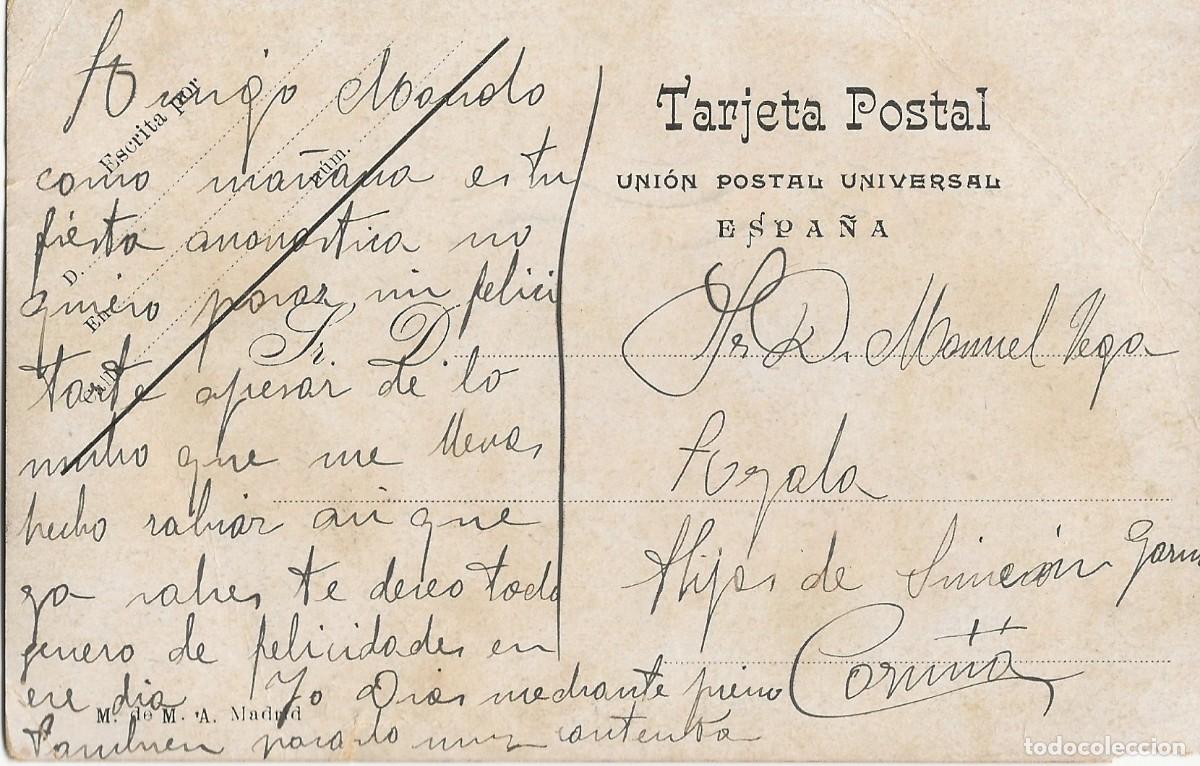 Amigo Manolo
como mañana es tu
fiesta anonastica no
quiero pasar mi felici
tarte apesar de lo
mucho que me llevas
hecho rabiar asi que
ya sabes te deseo todo
genero de felicidades en
ese dia Yo Dios mediante pienso
tambien pasarlo muy contenta
Escrita por
núm.
D.
En
Sr. D.
M. de M. A. Madrid
Tarjeta Postal
UNIÓN POSTAL UNIVERSAL
ESPAÑA
Sr D. Manuel Vega
Ayala
Hijos de Simeón
Coruña
todocoleccion